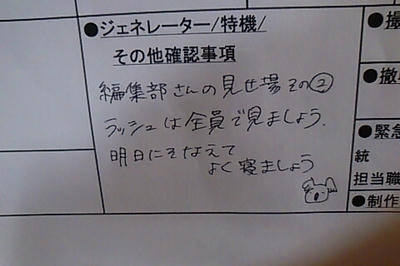 ●ジェネレーター/特機/
その他確認事項
編集部さんの見せ場その②
ラッシュは全員で見ましょう.
明日にそなえて
よく寝ましょう
●撤
●緊急
統
担当職
●制作